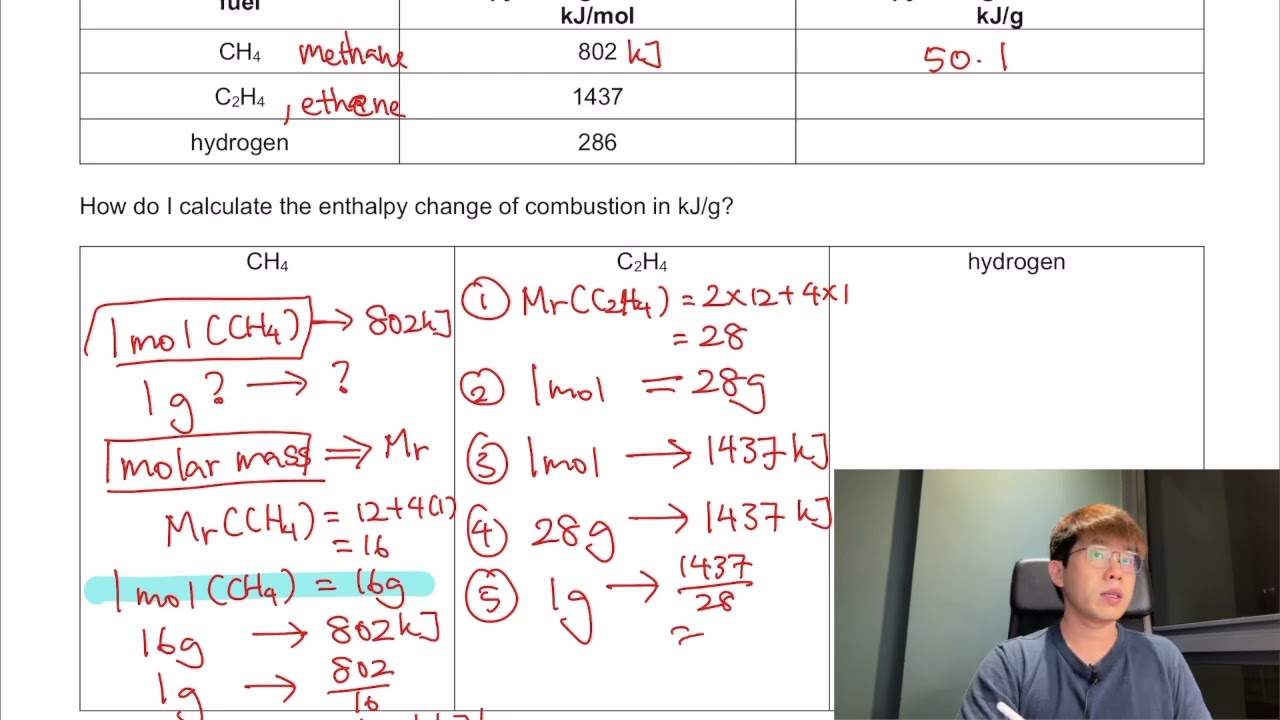 fuel
kJ/mol
kJ/g
CH₄ methane 802 kJ 50.1
C₂H₄, ethene 1437
hydrogen 286
How do I calculate the enthalpy change of combustion in kJ/g?
CH₄
1 mol (CH₄) → 802kJ
1g? → ?
molar mass ⇒ Mr
Mr(CH₄) = 12+4(1)
= 16
1 mol (CH₄) = 16g
16g → 802kJ
1g → 802/16
C₂H₄
① Mr(C₂H₄) = 2×12+4×1
= 28
② 1mol = 28g
③ 1mol → 1437kJ
④ 28g → 1437kJ
⑤ 1g → 1437/28
=
hydrogen